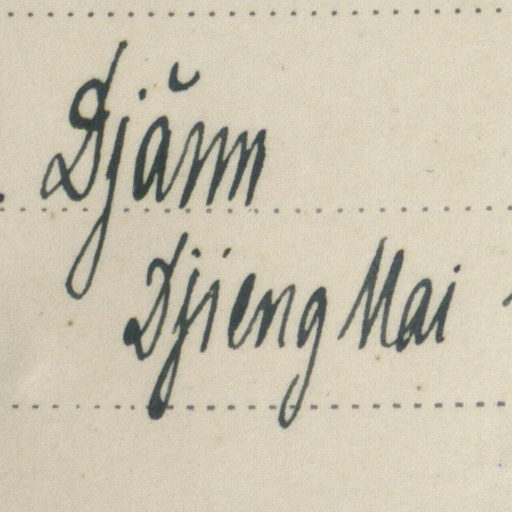 Djănn
Djieng Mai